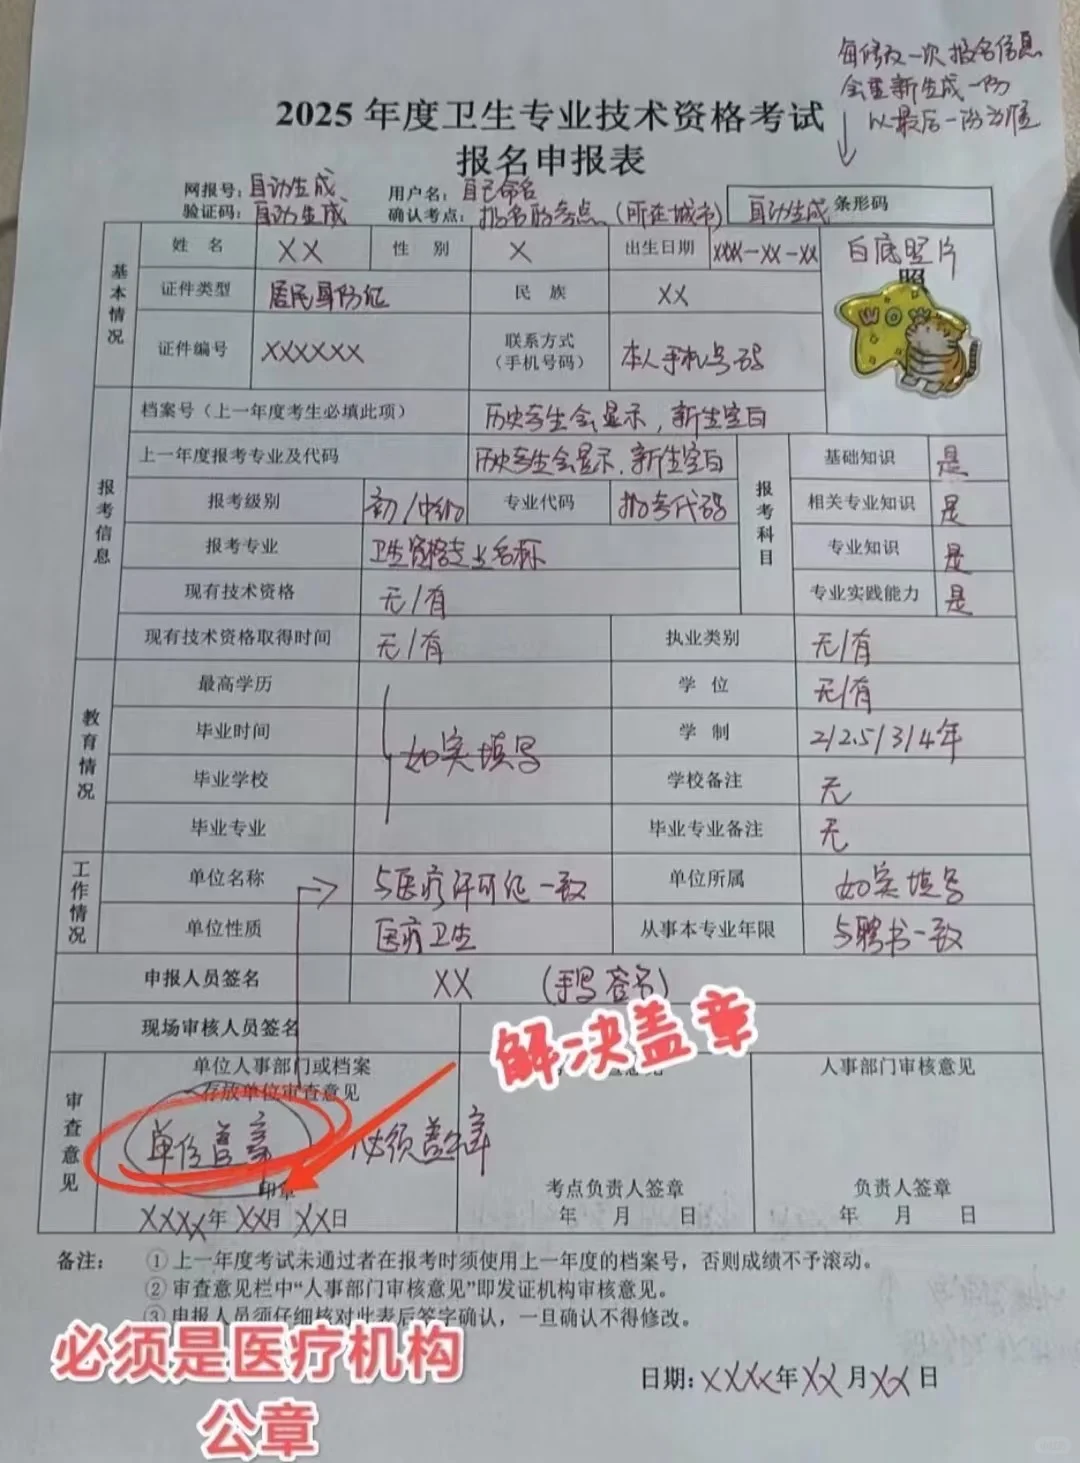 每修改一次报名信息
会重新生成一份
以最后一份为准
2025 年度卫生专业技术资格考试
报名申报表
网报号：自动生成 用户名：自己命名
验证码：自动生成 确认考点：报名的考点（所在城市） 自动生成 条形码
基本情况
姓 名 XX 性 别 X 出生日期 XXX-XX-XX 白底照片
照
WOW
证件类型 居民身份证 民 族 XX
证件编号 XXXXXX 联系方式（手机号码） 本人手机号码
报考信息
档案号（上一年度考生必填此项） 历史考生会显示，新生空白
上一年度报考专业及代码 历史考生会显示，新生空白 报考科目 基础知识 是
报考级别 初/中级 专业代码 报考代码 相关专业知识 是
报考专业 卫生资格专业名称 专业知识 是
现有技术资格 无/有 专业实践能力 是
现有技术资格取得时间 无/有 执业类别 无/有
教育情况
最高学历 学 位 无/有
毕业时间 如实填写 学 制 2/2.5/3/4年
毕业学校 学校备注 无
毕业专业 毕业专业备注 无
工作情况
单位名称 与医疗许可证一致 单位所属 如实填写
单位性质 医疗卫生 从事本专业年限 与聘书一致
申报人员签名 XX （手写签名）
现场审核人员签名
解决盖章
审查意见
单位人事部门或档案 人事部门审核意见
存放单位审查意见 意见
单位盖章 必须盖章
印章 考点负责人签章 负责人签章
XXXX年 XX月 XX日 年 月 日 年 月 日
备注： ①上一年度考试未通过者在报考时须使用上一年度的档案号，否则成绩不予滚动。
②审查意见栏中“人事部门审核意见”即发证机构审核意见。
③申报人员须仔细核对此表后签字确认，一旦确认不得修改。
必须是医疗机构
公章
日期：XXXX年XX月XX日